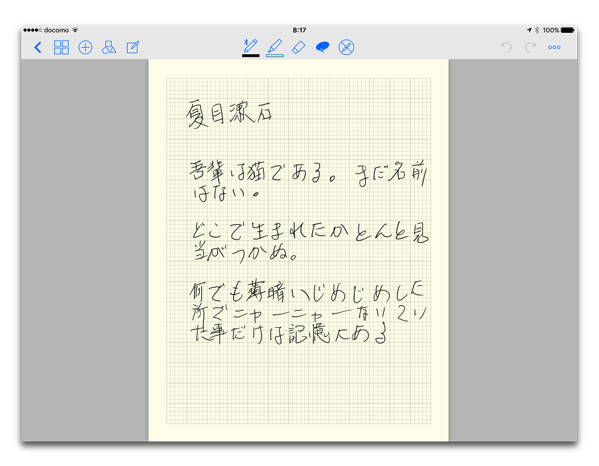 docomo 8:17 100%
夏目漱石
吾輩は猫である。まだ名前
はない。
どこで生まれたかとんと見
当がつかぬ。
何でも薄暗いじめじめした
所でニャーニャーないてい
た事だけは記憶ある